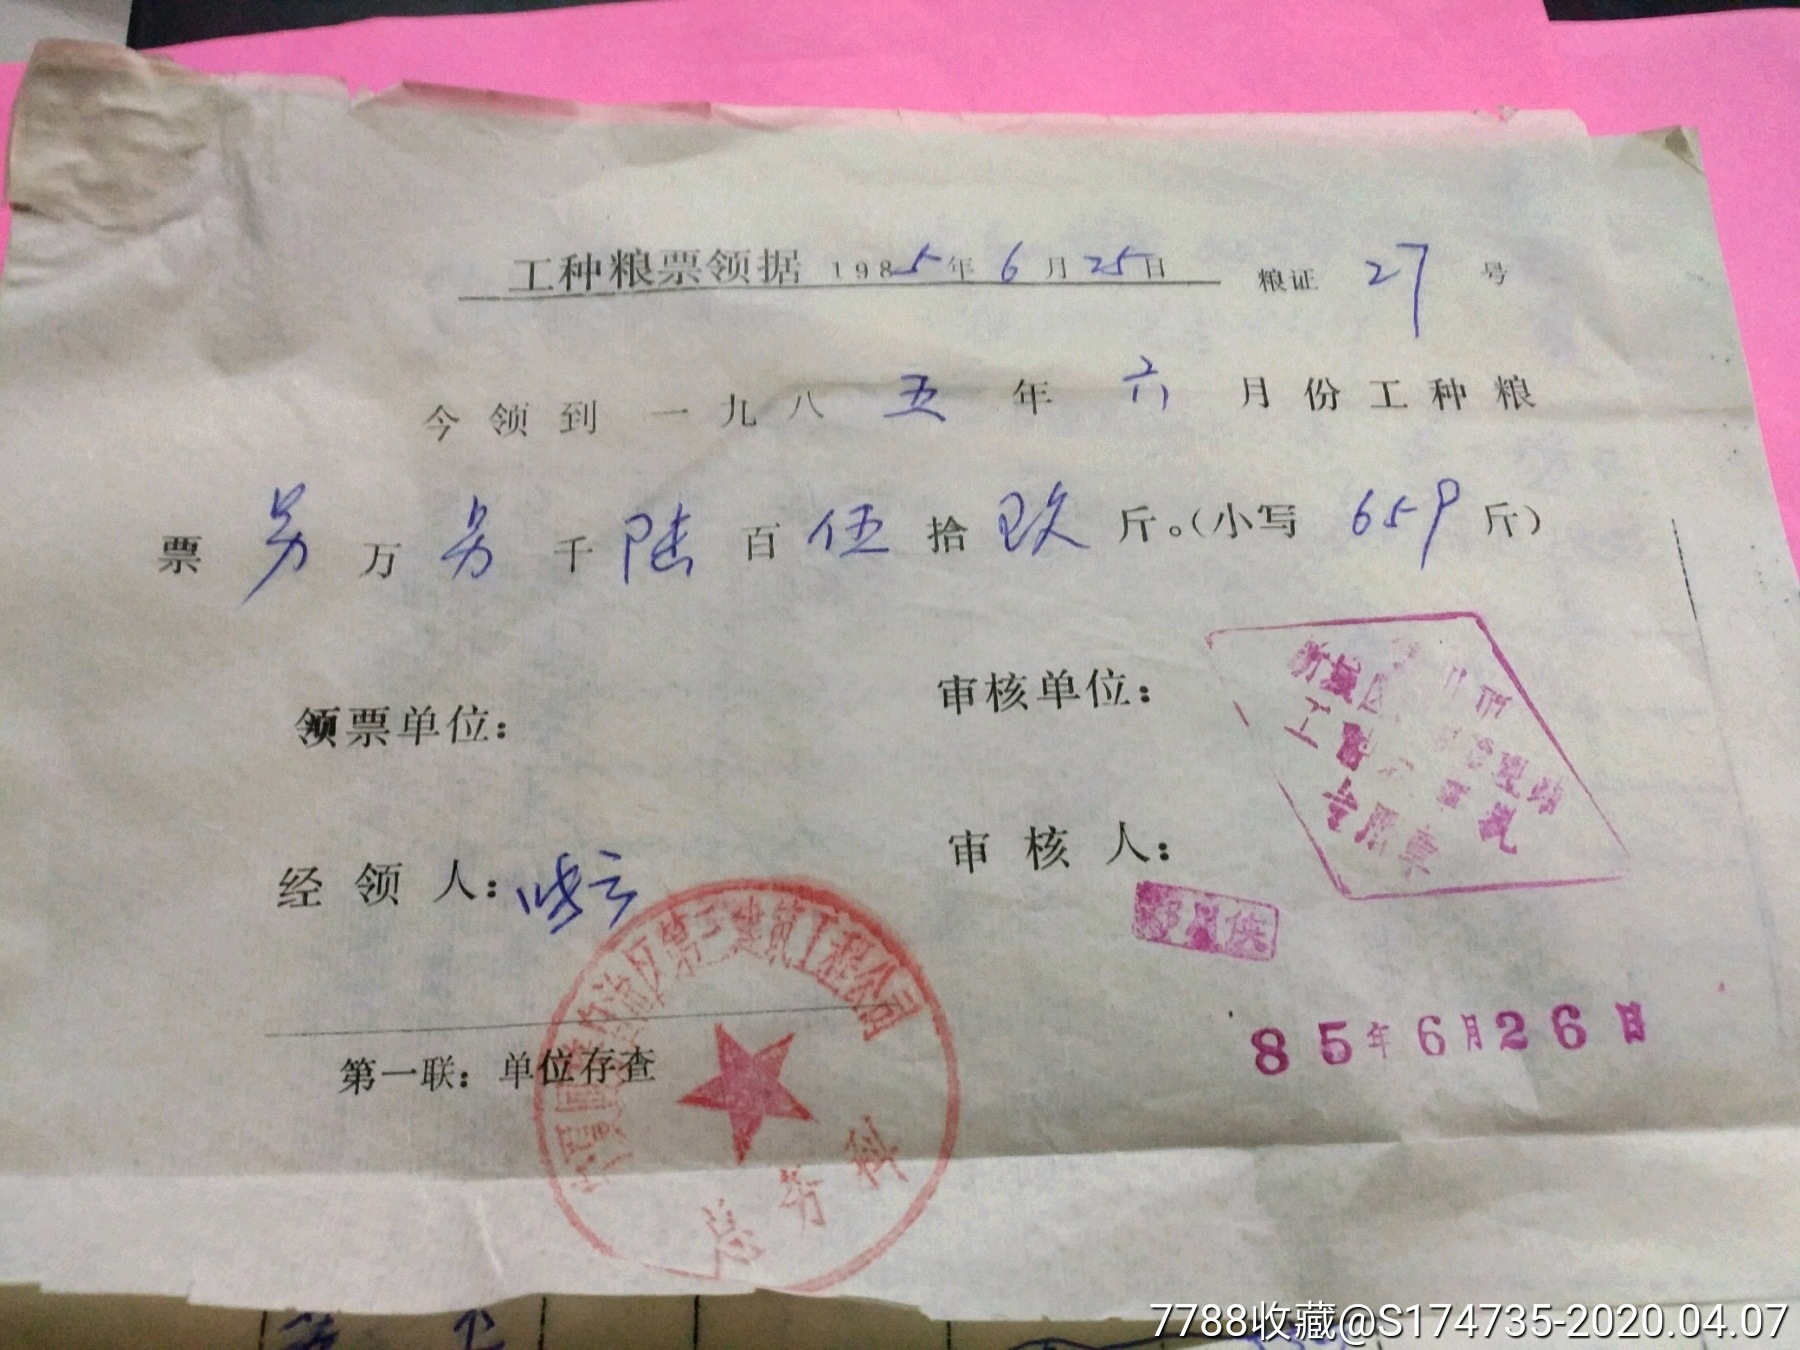 工种粮票领据 1985年6月25日 粮证 27 号
今领到一九八五年六月份工种粮
票 另 万 另 千 陆 百 伍 拾 玖 斤。(小写 659 斤)
领票单位:
审核单位:
新城区
经领人:
审核人:
区第三建筑工程公司
总务科
85年6月26日
第一联:单位存查
7788收藏@S174735-2020.04.07